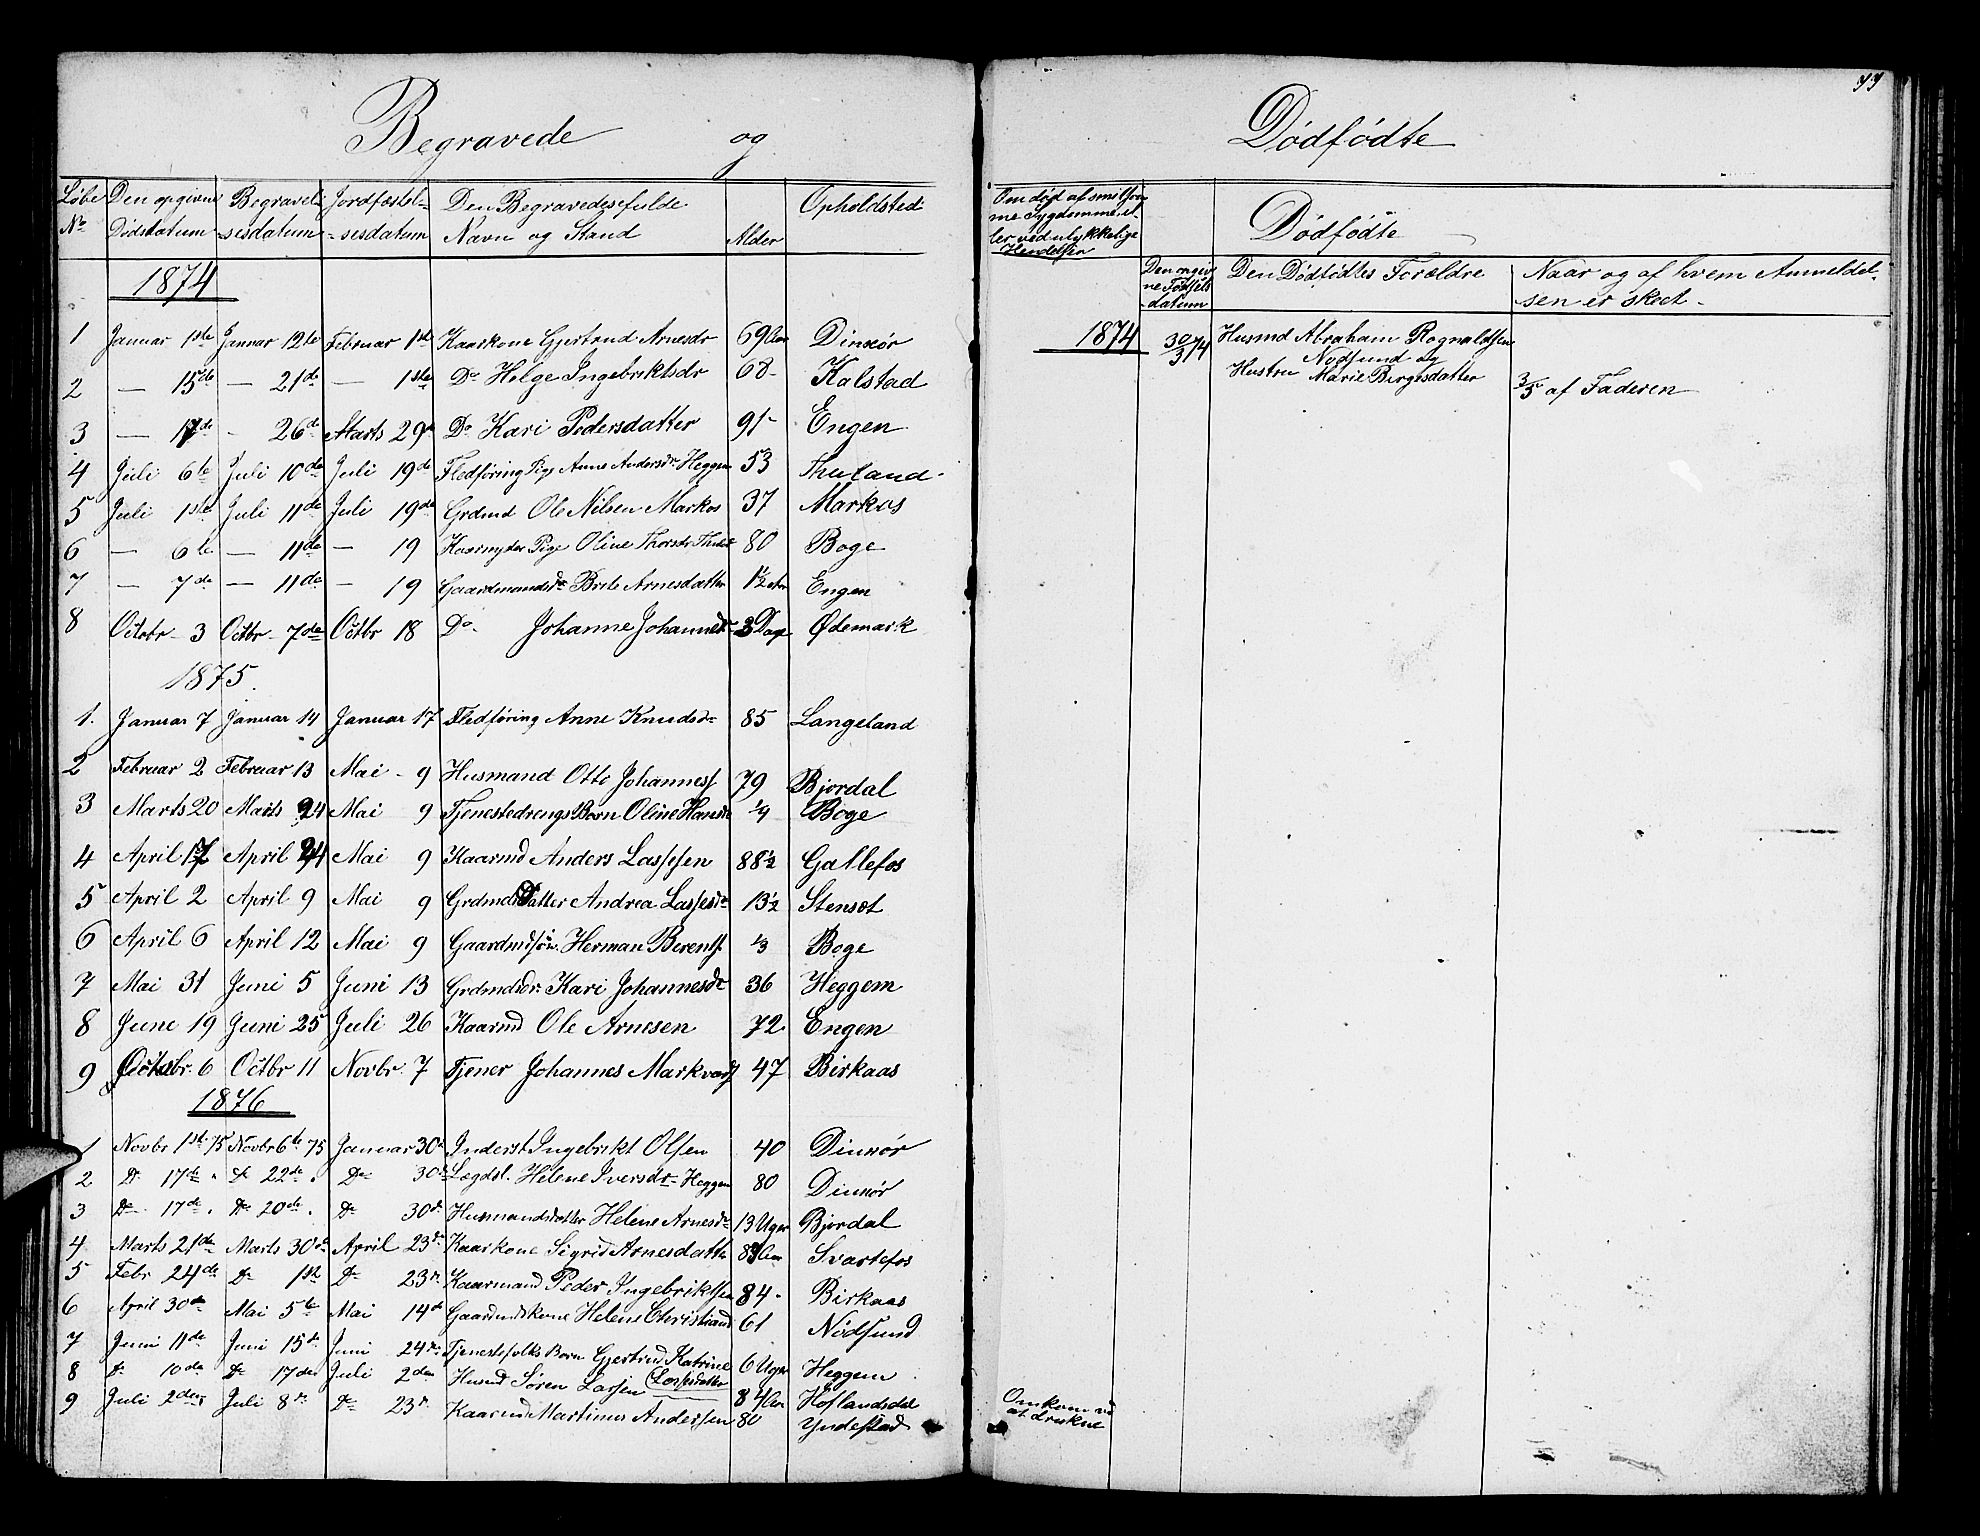 77
Begravede og Dødfødte
Løbe No. | Den opgivne Dødsdatum | Begravelsesdatum | Jordfæstelsesdatum | Den Begravedes fulde Navn og Stand | Alder | Opholdsted | Om død af smitsomme Sygdomme eller ved ulykkelige Hendelser | Dødfødte
Den opgivne Fødselsdatum | Den Dødfødtes Forældre | Naar og af hvem Anmeldelsen er skeet
1874
1 Januar 1ste Januar 12te Februar 1ste Kaarkone Gjertrud Arnesdr 69 Aar Dinnør
2 — 15de — 21de — 1ste Do Helge Ingebriktsdr 68 - Kalstad
3 — 17de - 26de Marts 29 Do Kari Pedersdatter 91 - Engen
4 Juli 6te Juli 10de Juli 19de Fledføring Pige Anne Andersdr Heggem 53 Thuland
5 Juli 1ste Juli 11de Juli 19de Grdmd Ole Nilsen Markos 37 Markos
6 — 6te — 11de — 19 Kaarnyder Pige Oline Thorsdr 80 Boge
7 — 7de — 11de — 19 Gaardmandsdr Brite Arnesdatter 1½ Engen
8 Octobr 3 Octbr 7de Octbr 18 Do Johanne Johannesdr 3 Dage Ødemark
1875
1. Januar 7 Januar 14 Januar 17 Fledføring Anne Knudsdr 85 Langeland
2 Februar 2 Februar 13 Mai - 9 Husmand Otto Johanness 79 Bjordal
3 Marts 20 Marts 24 Mai 9 Tjenestedrengs Barn Oline Hansdr ¼ Boge
4 April 17 April 24 Mai 9 Kaarmd Anders Lassesen 88½ Gallefos
5 April 2 April 9 Mai 9 Grdmds Datter Andrea Lassesdr 13½ Stenset
6 April 6 April 12 Mai 9 Gaardmdsøn. Herman Berents. ⅓ Boge
7 Mai 31 Juni 5 Juni 13 Grdmdsdr. Kari Johannesdr 36 Heggem
8 Juni 19 Juni 25 Juli 26 Kaarmd Ole Arnesen 72 Engen
9 Octobr. 6 Octbr 11 Novbr. 7 Tjener Johannes Markvards 47 Birkaas
1876
1 Novbr 1st 75 Novbr 6te 75 Januar 30d Inderst Ingebrikt Olsen 40 Dinnør
2 Do 17de Do 22de Do 30d Lægdsl. Helene Iversdr Heggem 80 Dinnør
3 Do 17de Do 20de Do 30d Husmandsdatter Helene Arnesdr 13 Uger Bjordal
4 Marts 21de Marts 30de April 23d Kaarkone Sigrid Arnesdatter Svartefos
5 Febr 24de Do 1st Do 23d Kaarmand Peder Ingebriktsen 84 - Birkaas
6 April 30de Mai 5te Mai 14d Gaardmdskone Helene Christiansd 61 Nødsund
7 Juni 11de Juni 15de Juni 24de Tjenestefolks Barn Gjertrud Katrine Lassesdatter 6 Uger Heggem
8 Do 10de Do 17den Juli 2den Husmd Søren Larsen 84 Aar Hoflandsdal
9 Juli 2den Juli 8d Do 23d Kaarmd Martinus Andersen 80 Yndestad
Omkom ved at drukne
1874
30/3 74 Husmd Abraham Rognaldsen
Nødsund og
Hustru Marie Birgesdatter
3/5 af Faderen